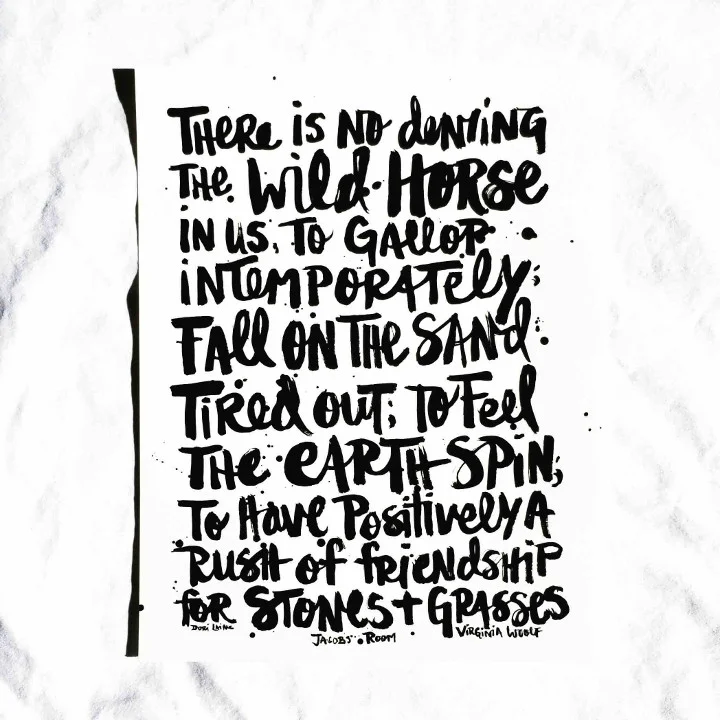 THERE IS NO DENYING
THE WILD HORSE
IN US. TO GALLOP
INTEMPORATELY;
FALL ON THE SAND
TIRED OUT; TO FEEL
THE EARTH SPIN;
TO HAVE POSITIVELY A
RUSH OF FRIENDSHIP
FOR STONES + GRASSES
JACOBS ROOM
VIRGINIA WOOLF